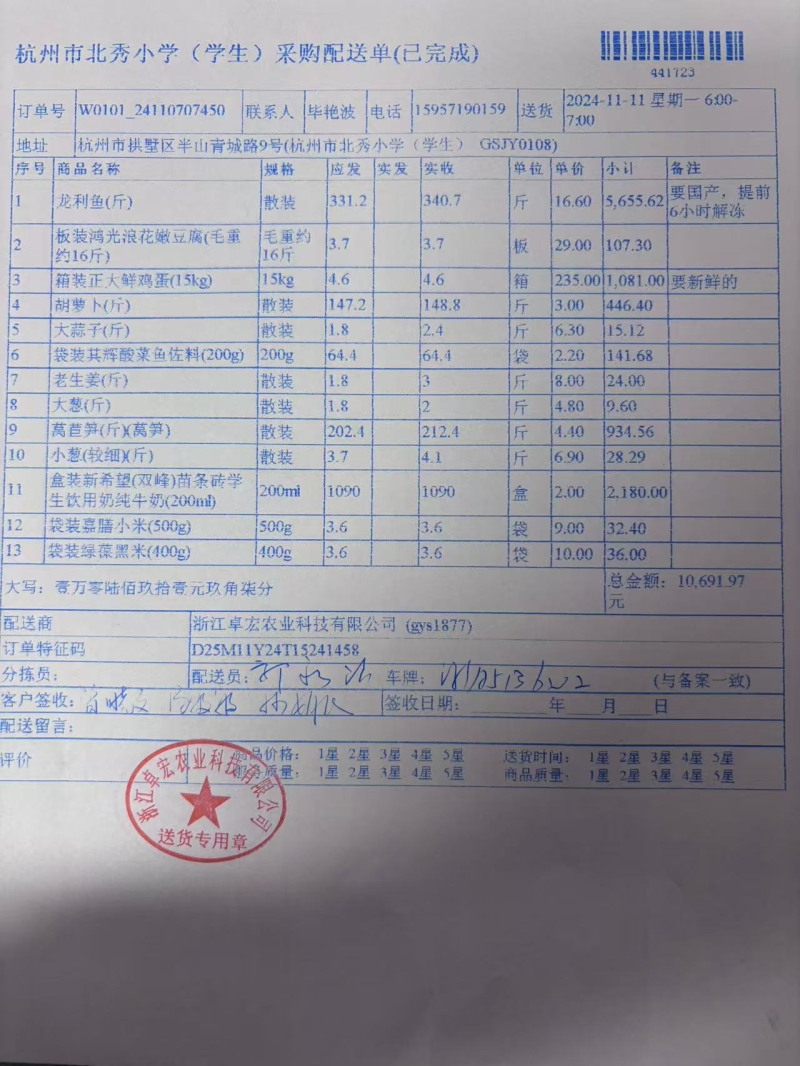 杭州市北秀小学（学生）采购配送单(已完成)
441723
订单号 W0101_24110707450 联系人 毕艳波 电话 15957190159 送货 2024-11-11 星期一 6:00-
7:00
地址 杭州市拱墅区半山青城路9号(杭州市北秀小学（学生） GSJY0108)
序号 商品名称 规格 应发 实发 实收 单位 单价 小计 备注
1 龙利鱼(斤) 散装 331.2 340.7 斤 16.60 5,655.62 要国产，提前
6小时解冻
2 板装鸿光浪花嫩豆腐(毛重
约16斤) 毛重约
16斤 3.7 3.7 板 29.00 107.30
3 箱装正大鲜鸡蛋(15kg) 15kg 4.6 4.6 箱 235.00 1,081.00 要新鲜的
4 胡萝卜(斤) 散装 147.2 148.8 斤 3.00 446.40
5 大蒜子(斤) 散装 1.8 2.4 斤 6.30 15.12
6 袋装其辉酸菜鱼佐料(200g) 200g 64.4 64.4 袋 2.20 141.68
7 老生姜(斤) 散装 1.8 3 斤 8.00 24.00
8 大葱(斤) 散装 1.8 2 斤 4.80 9.60
9 莴苣笋(斤)(莴笋) 散装 202.4 212.4 斤 4.40 934.56
10 小葱(较细)(斤) 散装 3.7 4.1 斤 6.90 28.29
11 盒装新希望(双峰)苗条砖学
生饮用奶纯牛奶(200ml) 200ml 1090 1090 盒 2.00 2,180.00
12 袋装嘉膳小米(500g) 500g 3.6 3.6 袋 9.00 32.40
13 袋装绿葆黑米(400g) 400g 3.6 3.6 袋 10.00 36.00
大写：壹万零陆佰玖拾壹元玖角柒分 总金额：10,691.97
元
配送商 浙江卓宏农业科技有限公司 (gys1877)
订单特征码 D25M11Y24T15241458
分拣员： 配送员： 车牌： (与备案一致)
客户签收： 签收日期：____年____月____日
配送留言：
评价 商品价格： 1星 2星 3星 4星 5星 送货时间： 1星 2星 3星 4星 5星
服务质量： 1星 2星 3星 4星 5星 商品质量： 1星 2星 3星 4星 5星
浙江卓宏农业科技有限公司
送货专用章